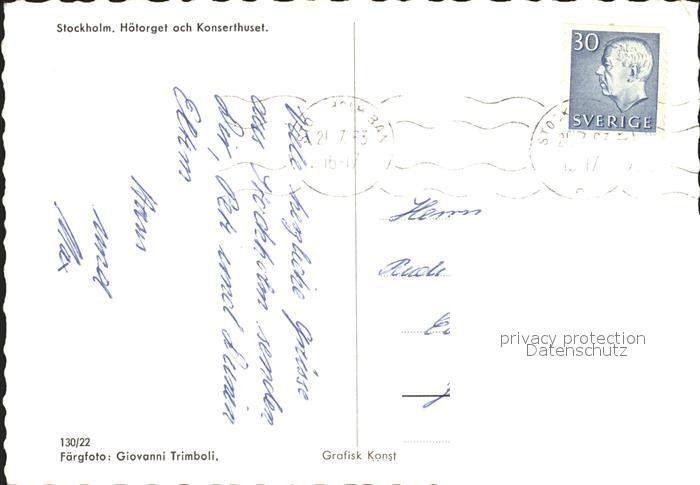 Stockholm. Hötorget och Konserthuset.
30
SVERIGE
21.7.63
16-17
Viele herzliche Grüsse
aus Stockholm senden
Dir, Peti und Deinen
Eltern
Hans
und
Max
Herrn
Rudi
privacy protection
Datenschutz
130/22
Färgfoto: Giovanni Trimboli.
Grafisk Konst